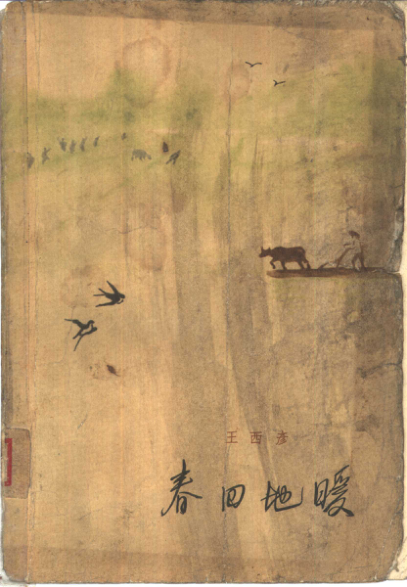 王西彦
春回地暖